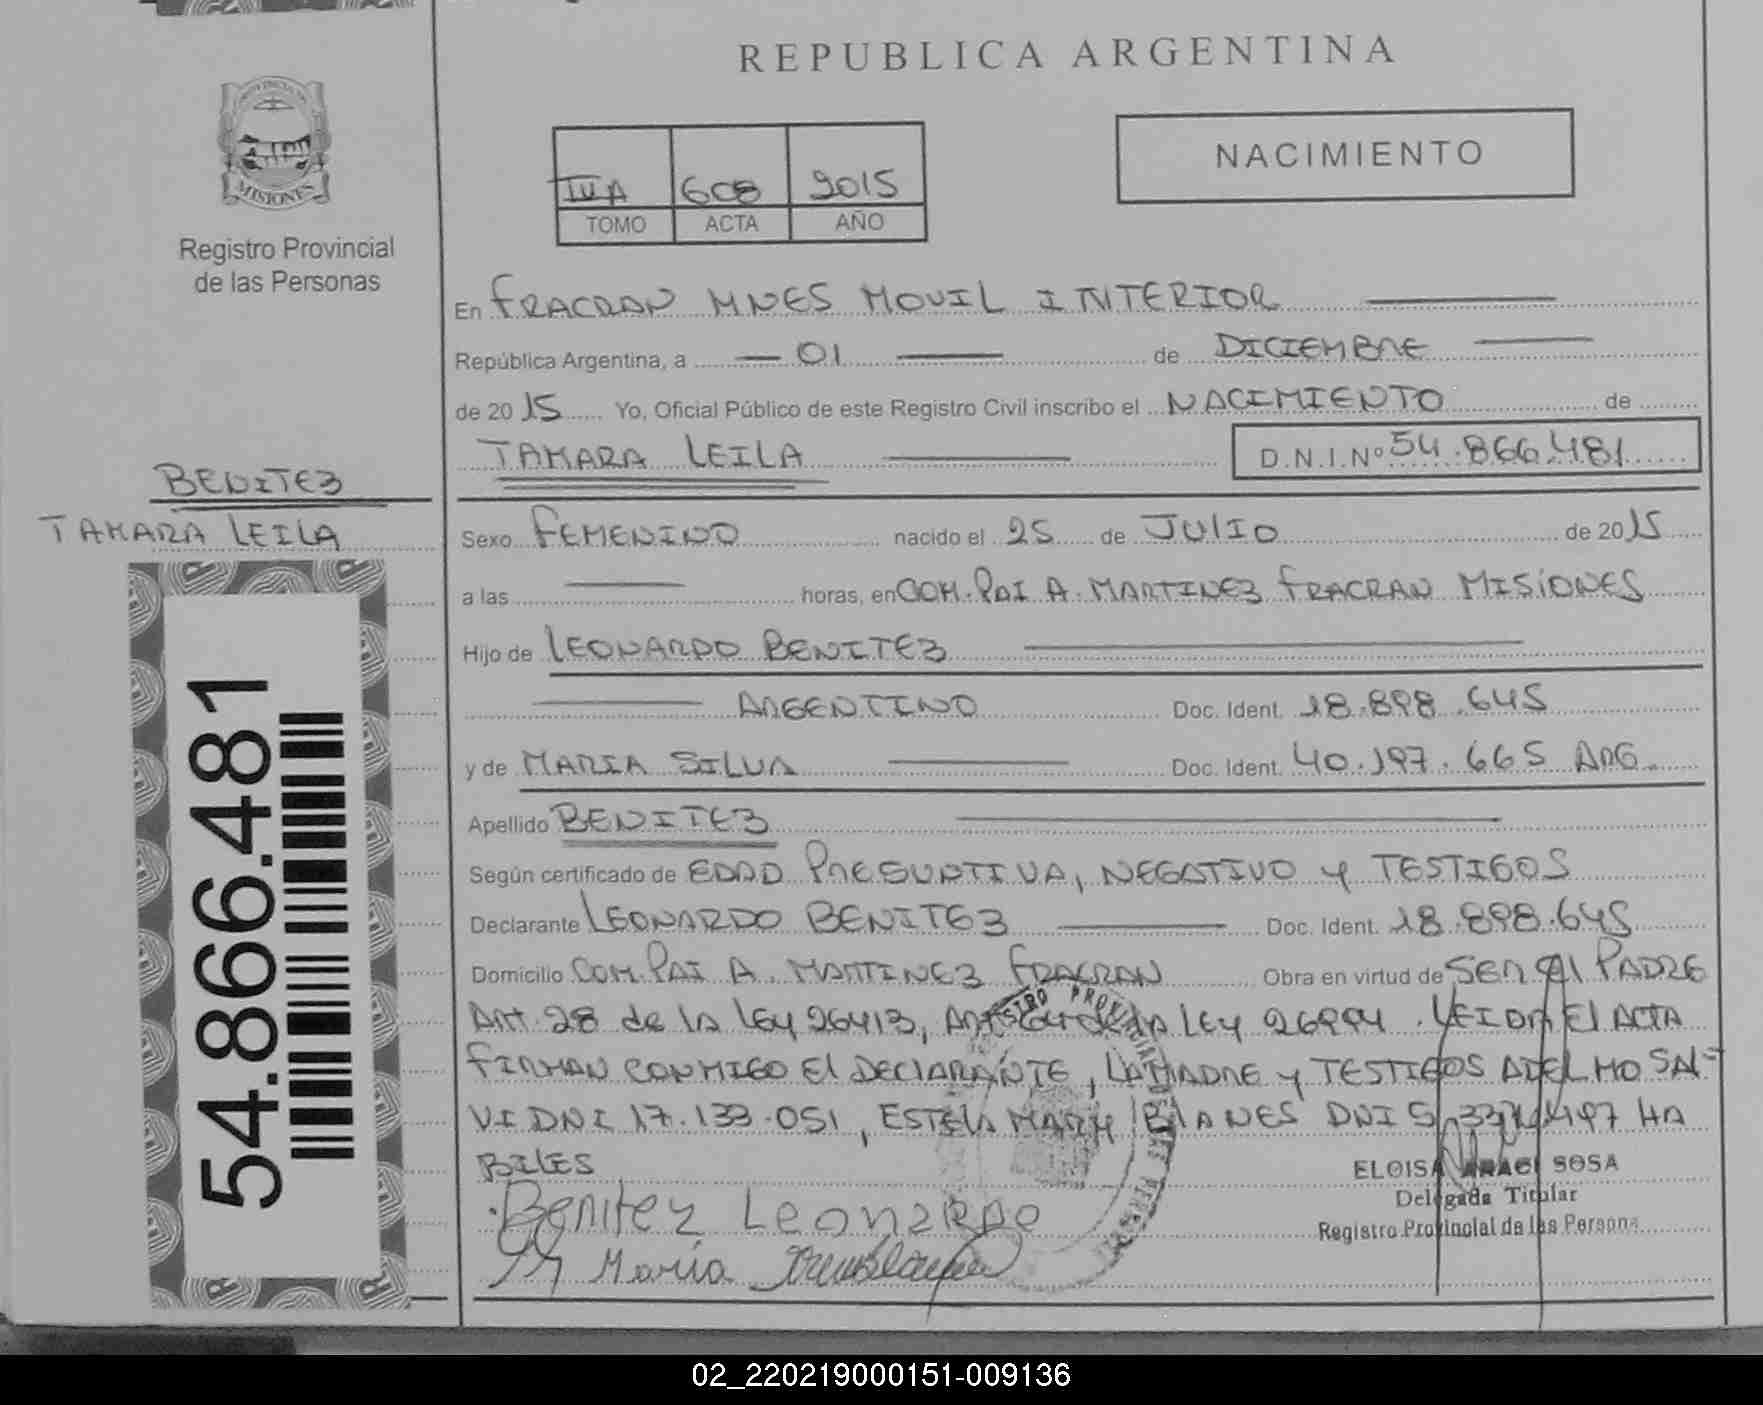 REPUBLICA ARGENTINA
NACIMIENTO
IVA 608 2015
TOMO ACTA AÑO
MISIONES
Registro Provincial
de las Personas
En FRACRAN MNES MOVIL INTERIOR
República Argentina, a 01 de DICIEMBRE
de 20 15 Yo, Oficial Público de este Registro Civil inscribo el NACIMIENTO de
TAMARA LEILA D.N.I.Nº 54.866.481
BENITEZ
TAMARA LEILA
Sexo FEMENINO nacido el 25 de JULIO de 20 15
a las horas, en COM. PAI A. MARTINEZ FRACRAN MISIONES
Hijo de LEONARDO BENITEZ
ARGENTINO Doc. Ident. 18.898.645
y de MARIA SILVA Doc. Ident. 40.197.665 ARG.
Apellido BENITEZ
Según certificado de EDAD PRESUNTIVA, NEGATIVO y TESTIGOS
Declarante LEONARDO BENITEZ Doc. Ident. 18.898.645
Domicilio COM. PAI A. MARTINEZ FRACRAN Obra en virtud de SER El PADRE
Art 28 de la LEy 26413, LEy 26994. LEIDA El ACTA
FIRMAN CONMIGO El DECLARANTE, LA MADRE y TESTIGOS ADELMO SAL=
VI DNI 17.133.051, ESTELA MARY BLANES DNI HA
BILES
54.866.481
ELOISA ARACI SOSA
Delegada Titular
Registro Provincial de las Persona
Benitez Leonardo
María
02_220219000151-009136